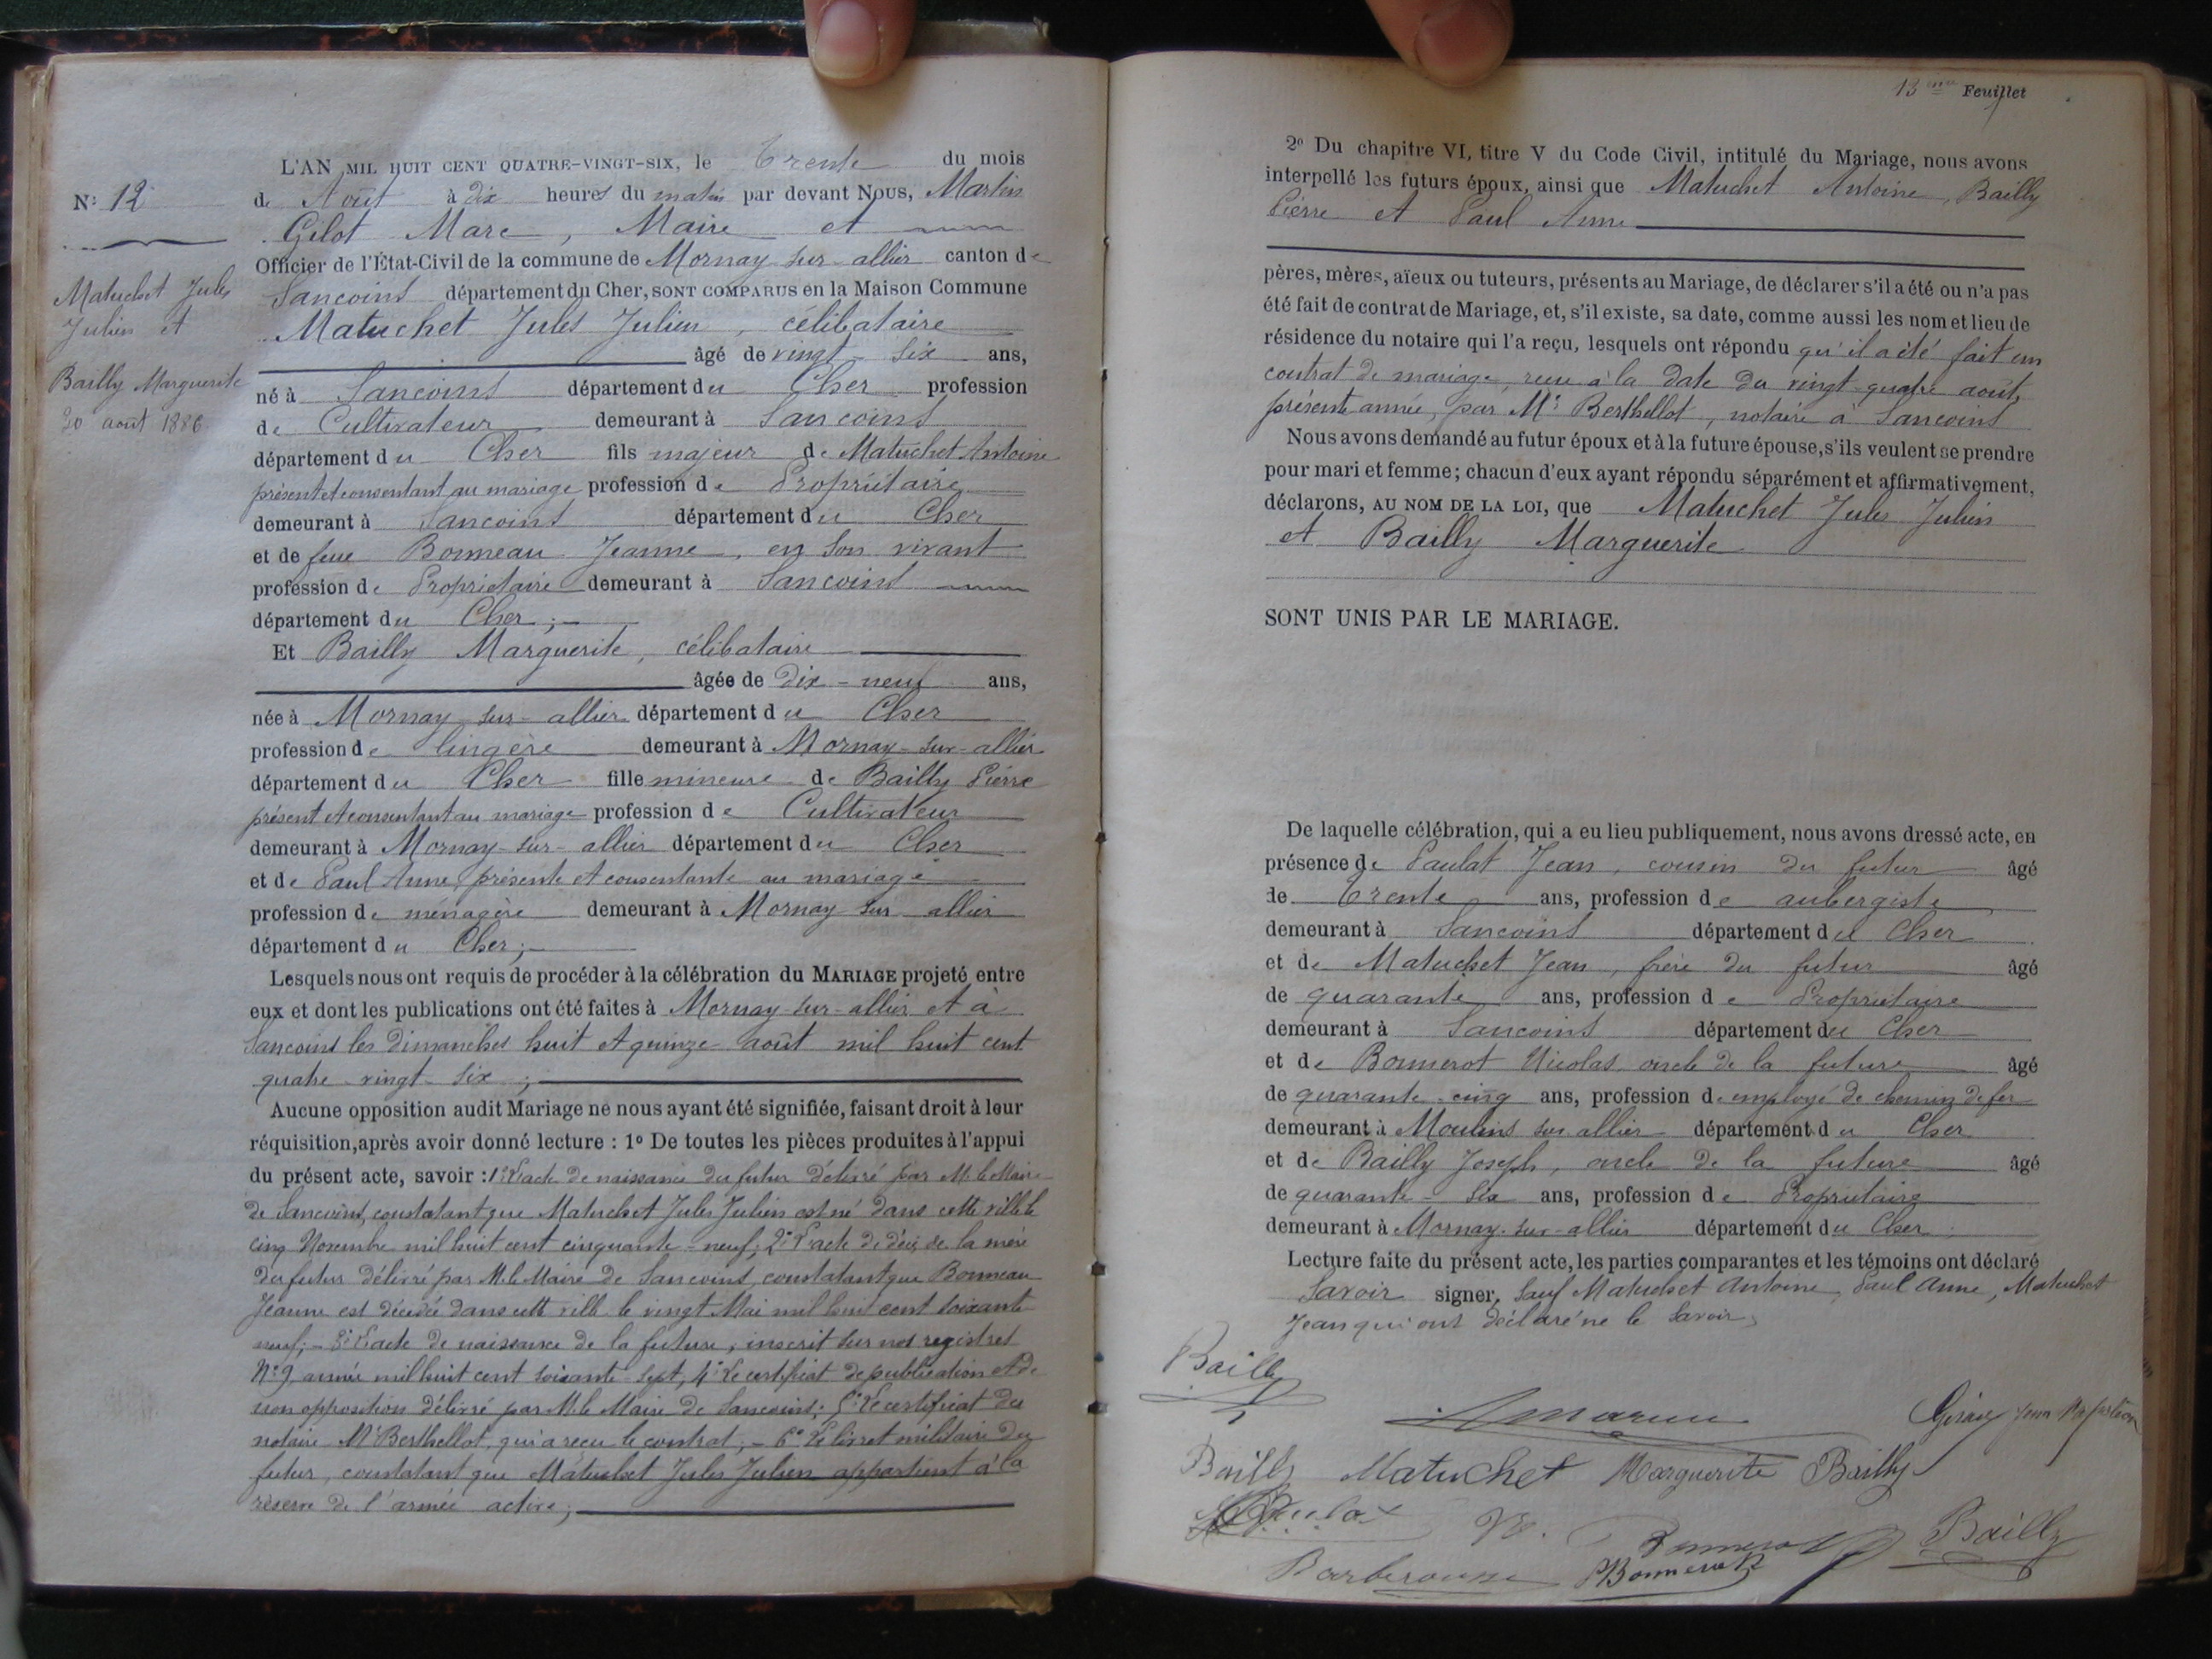 N: 12
Matuchet Jules
Julien et
Bailly Marguerite
30 août 1886
L'AN MIL HUIT CENT QUATRE-VINGT-SIX, le Trente du mois
de Août à dix heures du matin par devant Nous, Martin
Gilot Marc, Maire et
Officier de l'État-Civil de la commune de Mornay-sur-allier canton de
Sancoins département du Cher, SONT COMPARUS en la Maison Commune
Matuchet Jules Julien, célibataire
âgé de vingt-six ans,
né à Sancoins département du Cher profession
de Cultivateur demeurant à Sancoins
département du Cher fils majeur de Matuchet Antoine
présent et consentant au mariage profession de Propriétaire
demeurant à Sancoins département du Cher
et de feue Bonneau Jeanne, en son vivant
profession de Propriétaire demeurant à Sancoins
département du Cher;
Et Bailly Marguerite, célibataire
âgée de dix-neuf ans,
née à Mornay-sur-allier département du Cher
profession de lingère demeurant à Mornay-sur-allier
département du Cher fille mineure de Bailly Pierre
présent et consentant au mariage profession de Cultivateur
demeurant à Mornay-sur-allier département du Cher
et de Paul Anne, présente et consentante au mariage
profession de ménagère demeurant à Mornay sur allier
département du Cher;
Lesquels nous ont requis de procéder à la célébration du MARIAGE projeté entre
eux et dont les publications ont été faites à Mornay-sur-allier et à
Sancoins les dimanches huit et quinze août mil huit cent
quatre-vingt-six;
Aucune opposition audit Mariage ne nous ayant été signifiée, faisant droit à leur
réquisition, après avoir donné lecture : 1º De toutes les pièces produites à l'appui
du présent acte, savoir : 1º L'acte de naissance du futur délivré par M. le Maire
de Sancoins, constatant que Matuchet Jules Julien est né dans cette ville le
cinq Novembre mil huit cent cinquante-neuf; 2º L'acte de décès de la mère
du futur délivré par M. le Maire de Sancoins, constatant que Bonneau
Jeanne est décédée dans cette ville le vingt Mai mil huit cent soixante
neuf; - 3º L'acte de naissance de la future, inscrit sur nos registres
Nº 9, année mil huit cent soixante-sept, 4º Le certificat de publication et de
non opposition délivré par M. le Maire de Sancoins; 5º Le certificat du
notaire Mº Berthellot, qui a reçu le contrat; - 6º Le livret militaire du
futur, constatant que Matuchet Jules Julien appartient à la
réserve de l'armée active;
13ème Feuillet
2º Du chapitre VI, titre V du Code Civil, intitulé du Mariage, nous avons
interpellé les futurs époux, ainsi que Matuchet Antoine, Bailly
Pierre et Paul Anne
pères, mères, aïeux ou tuteurs, présents au Mariage, de déclarer s'il a été ou n'a pas
été fait de contrat de Mariage, et, s'il existe, sa date, comme aussi les nom et lieu de
résidence du notaire qui l'a reçu, lesquels ont répondu qu'il a été fait un
contrat de mariage, reçu à la date du vingt-quatre août,
présente année, par Mº Berthellot, notaire à Sancoins
Nous avons demandé au futur époux et à la future épouse, s'ils veulent se prendre
pour mari et femme; chacun d'eux ayant répondu séparément et affirmativement,
déclarons, AU NOM DE LA LOI, que Matuchet Jules Julien
et Bailly Marguerite
SONT UNIS PAR LE MARIAGE.
De laquelle célébration, qui a eu lieu publiquement, nous avons dressé acte, en
présence de Paulat Jean, cousin du futur âgé
de Trente ans, profession de aubergiste
demeurant à Sancoins département du Cher
et de Matuchet Jean, frère du futur âgé
de quarante ans, profession de Propriétaire
demeurant à Sancoins département du Cher
et de Bonnerot Nicolas oncle de la future âgé
de quarante-cinq ans, profession de employé de chemin de fer
demeurant à Moulins sur allier département du Cher
et de Bailly Joseph, oncle de la future âgé
de quarante-six ans, profession de Propriétaire
demeurant à Mornay-sur-allier département du Cher
Lecture faite du présent acte, les parties comparantes et les témoins ont déclaré
savoir signer, sauf Matuchet Antoine, Paul Anne, Matuchet
Jean qui ont déclaré ne le savoir,
Bailly
Bailly Matuchet Marguerite Bailly
Bonnerot Bailly
Barberousse Bonnerot